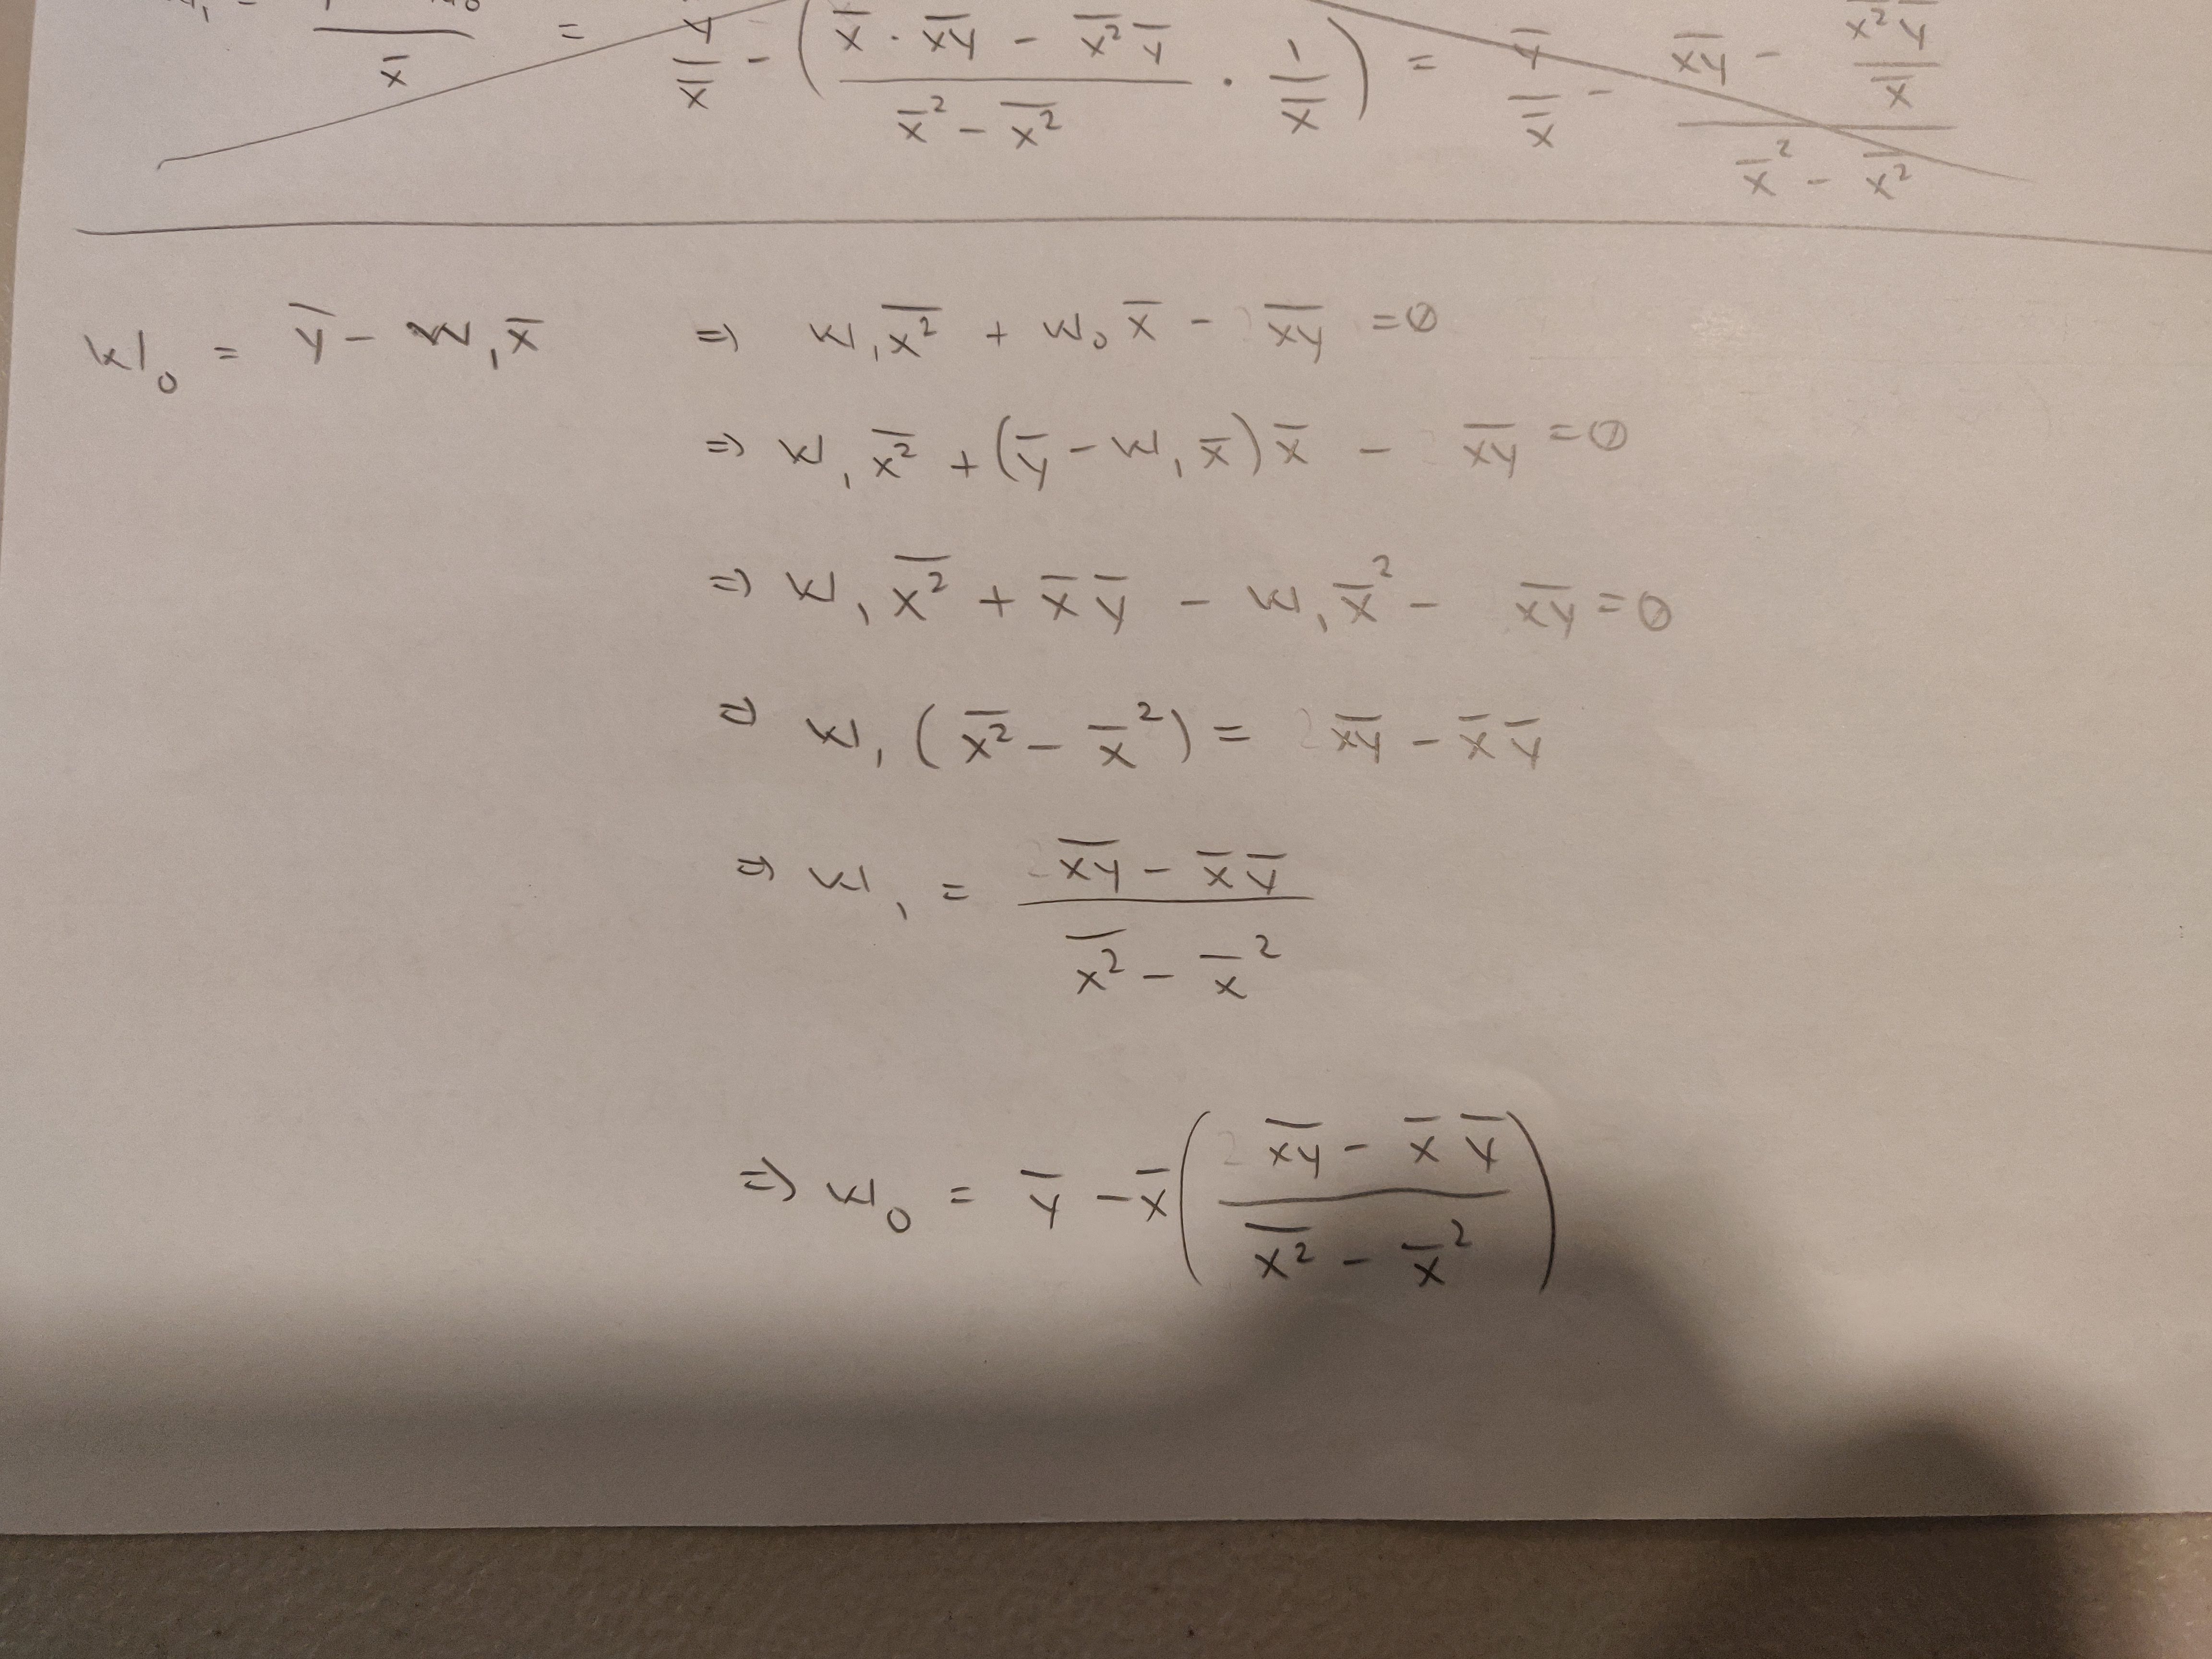 x̄ = ȳ/x̄ - ( (x̄ · \overline{xy} - \overline{x²} ȳ)/(x̄² - \overline{x²}) · 1/x̄ ) = ȳ/x̄ - (\overline{xy} - \overline{x²} ȳ/x̄)/(x̄² - \overline{x²})
w₀ = ȳ - w₁x̄ ⇒ w₁\overline{x²} + w₀x̄ - \overline{xy} = 0
⇒ w₁\overline{x²} + (ȳ - w₁x̄)x̄ - \overline{xy} = 0
⇒ w₁\overline{x²} + x̄ȳ - w₁x̄² - \overline{xy} = 0
⇒ w₁(\overline{x²} - x̄²) = \overline{xy} - x̄ȳ
⇒ w₁ = (\overline{xy} - x̄ȳ)/(\overline{x²} - x̄²)
⇒ w₀ = ȳ - x̄( (\overline{xy} - x̄ȳ)/(\overline{x²} - x̄²) )